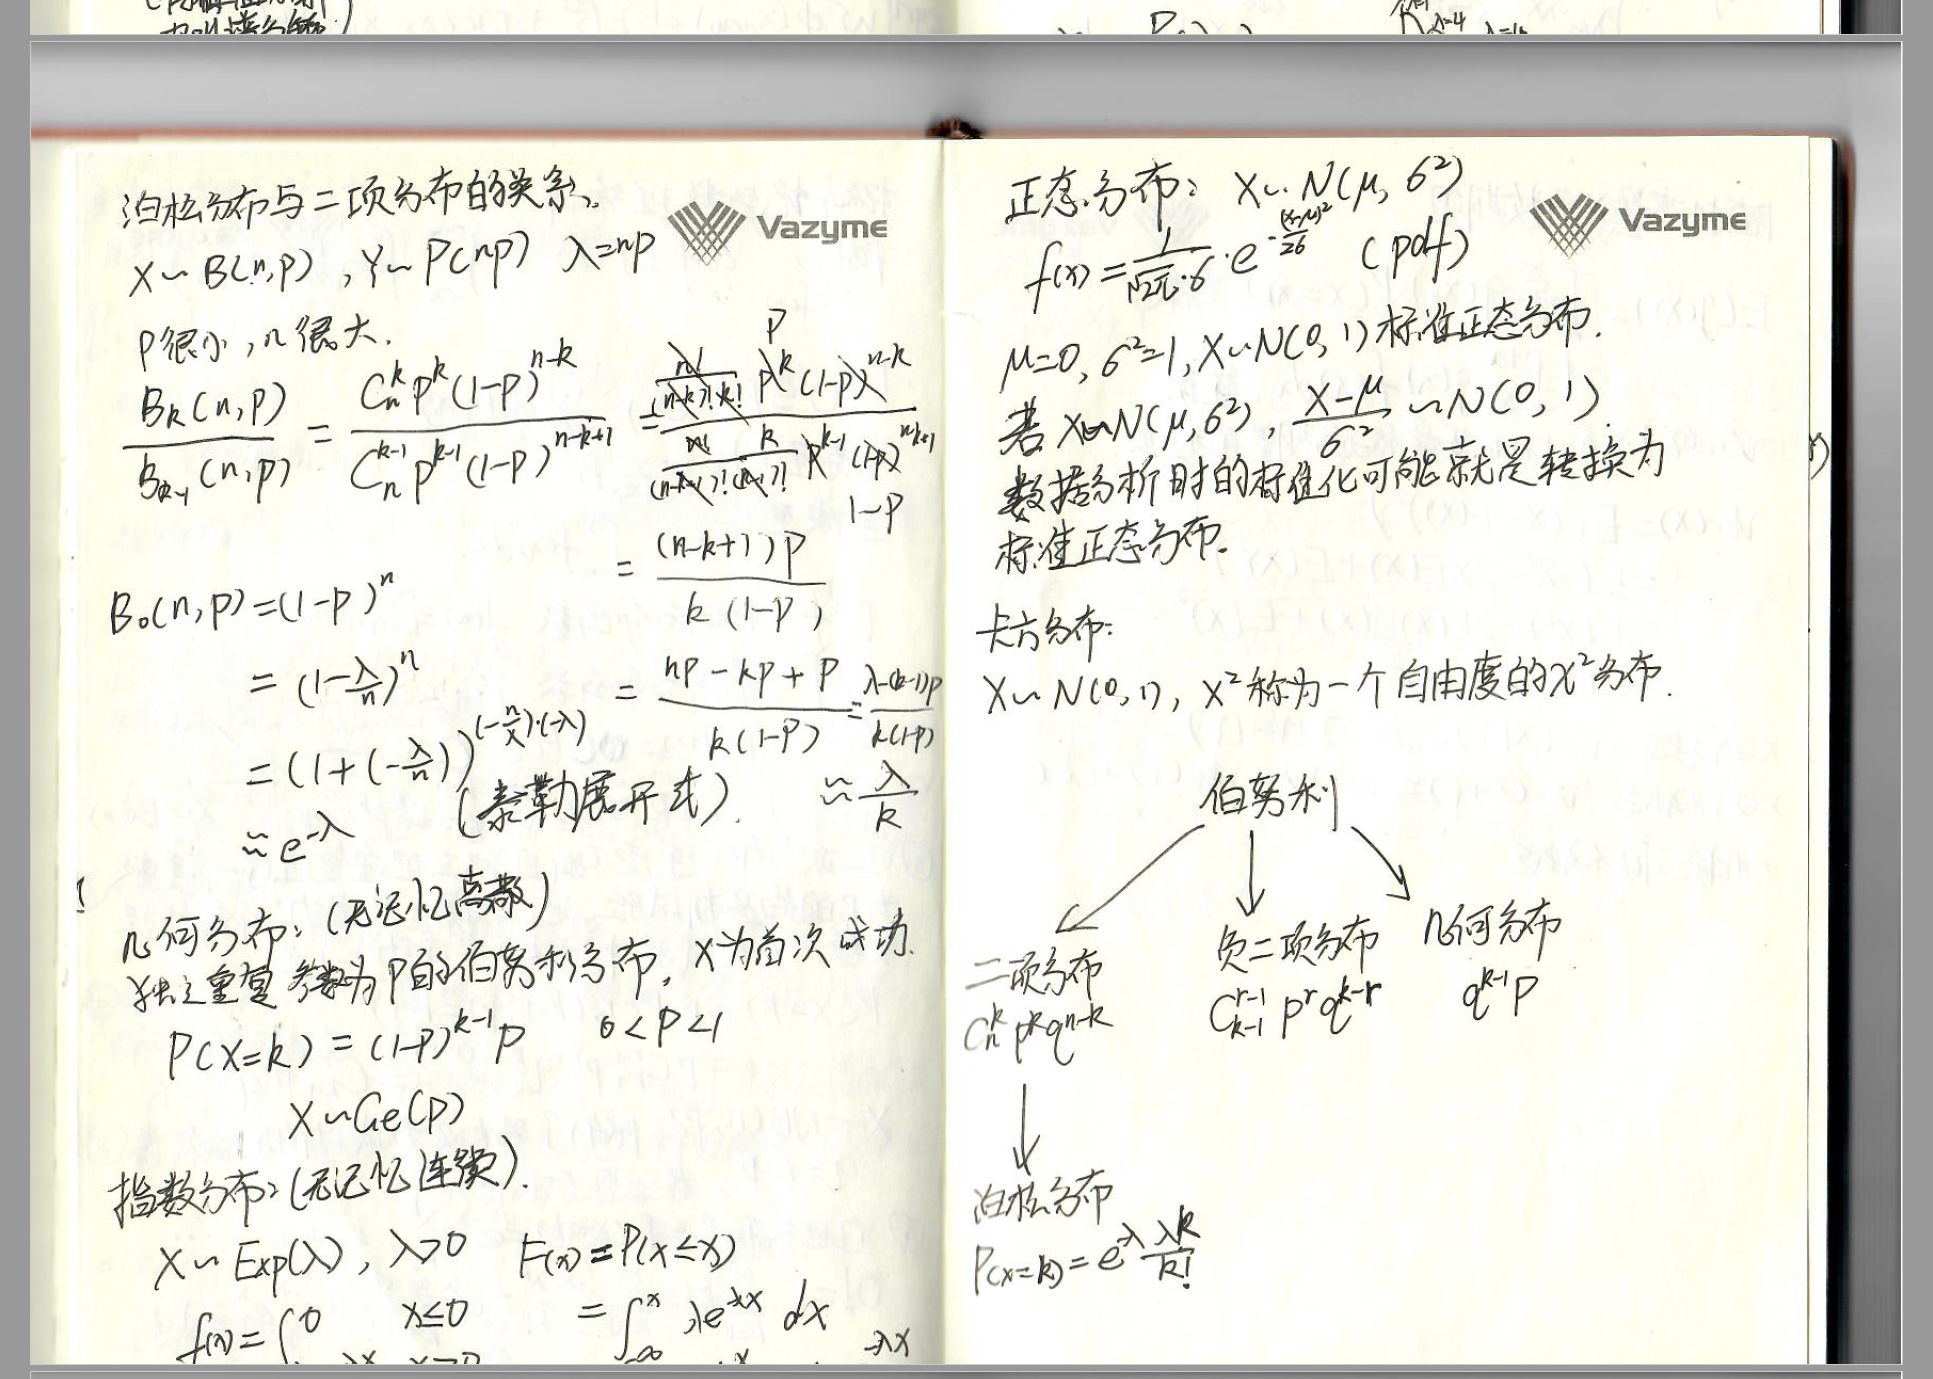 泊松分布与二项分布的关系.
Vazyme
X～B(n,p) , Y～P(np) λ=np
p很小, n很大.
B_k(n,p) / B_{k-1}(n,p) = C_n^k p^k (1-p)^{n-k} / C_n^{k-1} p^{k-1} (1-p)^{n-k+1}
= (n-k+1)p / k(1-p)
= np-kp+p / k(1-p) = λ-(k-1)p / k(1-p)
≈ λ/k
B_0(n,p) = (1-p)^n
= (1-λ/n)^n
= (1+(-λ/n))^{(-n/λ)·(-λ)}
≈ e^{-λ} (泰勒展开式).
几何分布: (无记忆离散)
独立重复参数为p的伯努利分布, X为首次成功.
P(X=k) = (1-p)^{k-1} p 0<p<1
X～Ge(p)
指数分布: (无记忆连续).
X～Exp(λ), λ>0 F(x) = P(X≤x)
f(x) = { 0 x≤0 = ∫_{-∞}^x λe^{-λx} dx
正态分布: X～N(μ, σ²)
Vazyme
f(x) = 1/(√2π·σ) · e^{-(x-μ)²/2σ} (pdf)
μ=0, σ²=1, X～N(0,1) 标准正态分布.
若X～N(μ,σ²), (X-μ)/σ² ～N(0,1).
数据分析时的标准化可能就是转换为
标准正态分布.
卡方分布:
X～N(0,1), X²称为一个自由度的χ²分布.
伯努利
二项分布 负二项分布 几何分布
C_n^k p^k q^{n-k} C_{k-1}^{r-1} p^r q^{k-r} q^{k-1}p
泊松分布
P(X=k) = e^{-λ} λ^k/k!